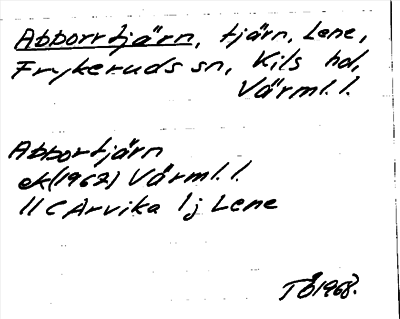 Abborrtjärn, tjärn, Lene,
Frykeruds sn, Kils hd,
Värml. l.
Abbortjärn
ek (1967) Värml. l.
11 C Arvika 1 j Lene
TÖ 1968.